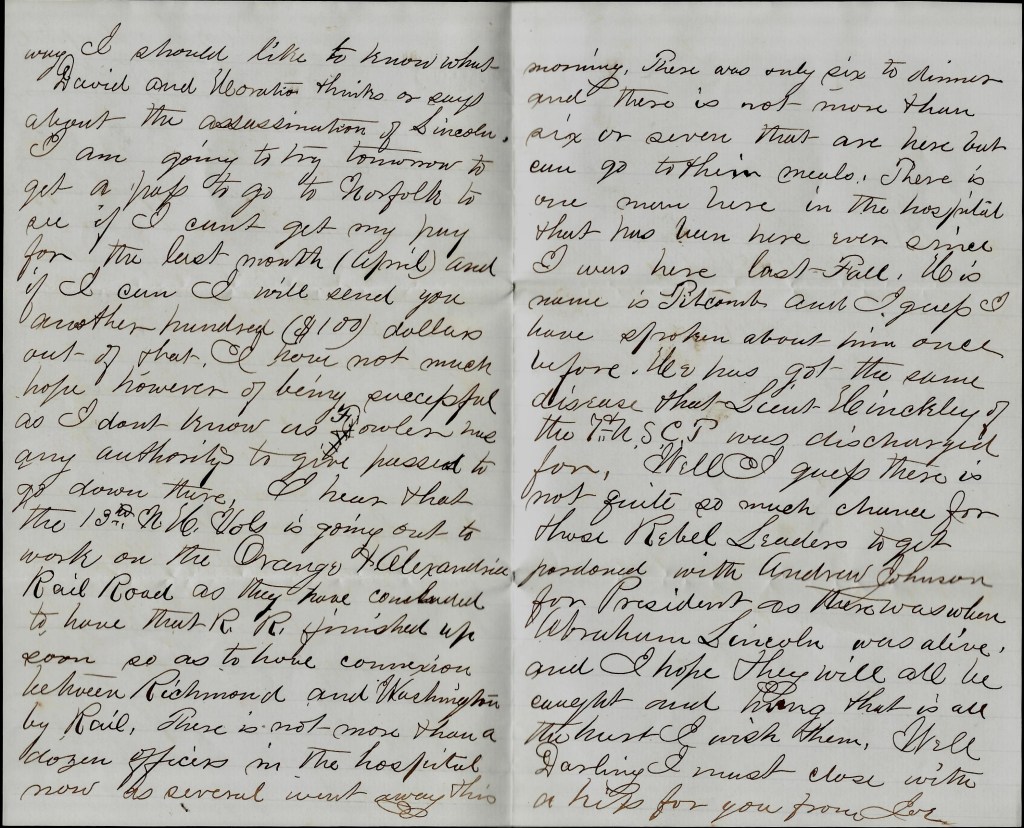 way I should like to know what
David and Horatio thinks or says
about the assassination of Lincoln.
I am going to try tomorrow to
get a pass to go to Norfolk to
see if I cant get my pay
for the last month (April) and
if I can I will send you
another hundred ($100) dollars
out of that. I have not much
hope however of being successful
as I dont know as Fowler has
any authority to give passes to
go down there, I hear that
the 13th N H Vols is going out to
work on the Orange & Alexandria
Rail Road as they have concluded
to have that R. R. finished up
soon so as to have connexion
between Richmond and Washington
by Rail. There is not more than a
dozen officers in the hospital
now as several went away this
morning. There was only six to dinner
and there is not more than
six or seven that are here but
can go to their meals. There is
one man here in the hospital
that has been here ever since
I was here last Fall. His
name is Pitcomb and I guess I
have spoken about him once
before. He has got the same
disease that Lieut Hinckley of
the 7th U. S C. T was discharged
for, Well I guess there is
not quite so much chance for
those Rebel Leaders to get
pardoned with Andrew Johnson
for President as there was when
Abraham Lincoln was alive.
and I hope they will all be
caught and hung that is all
the hurt I wish them, Well
Darling I must close with
a kiss for you from Joe